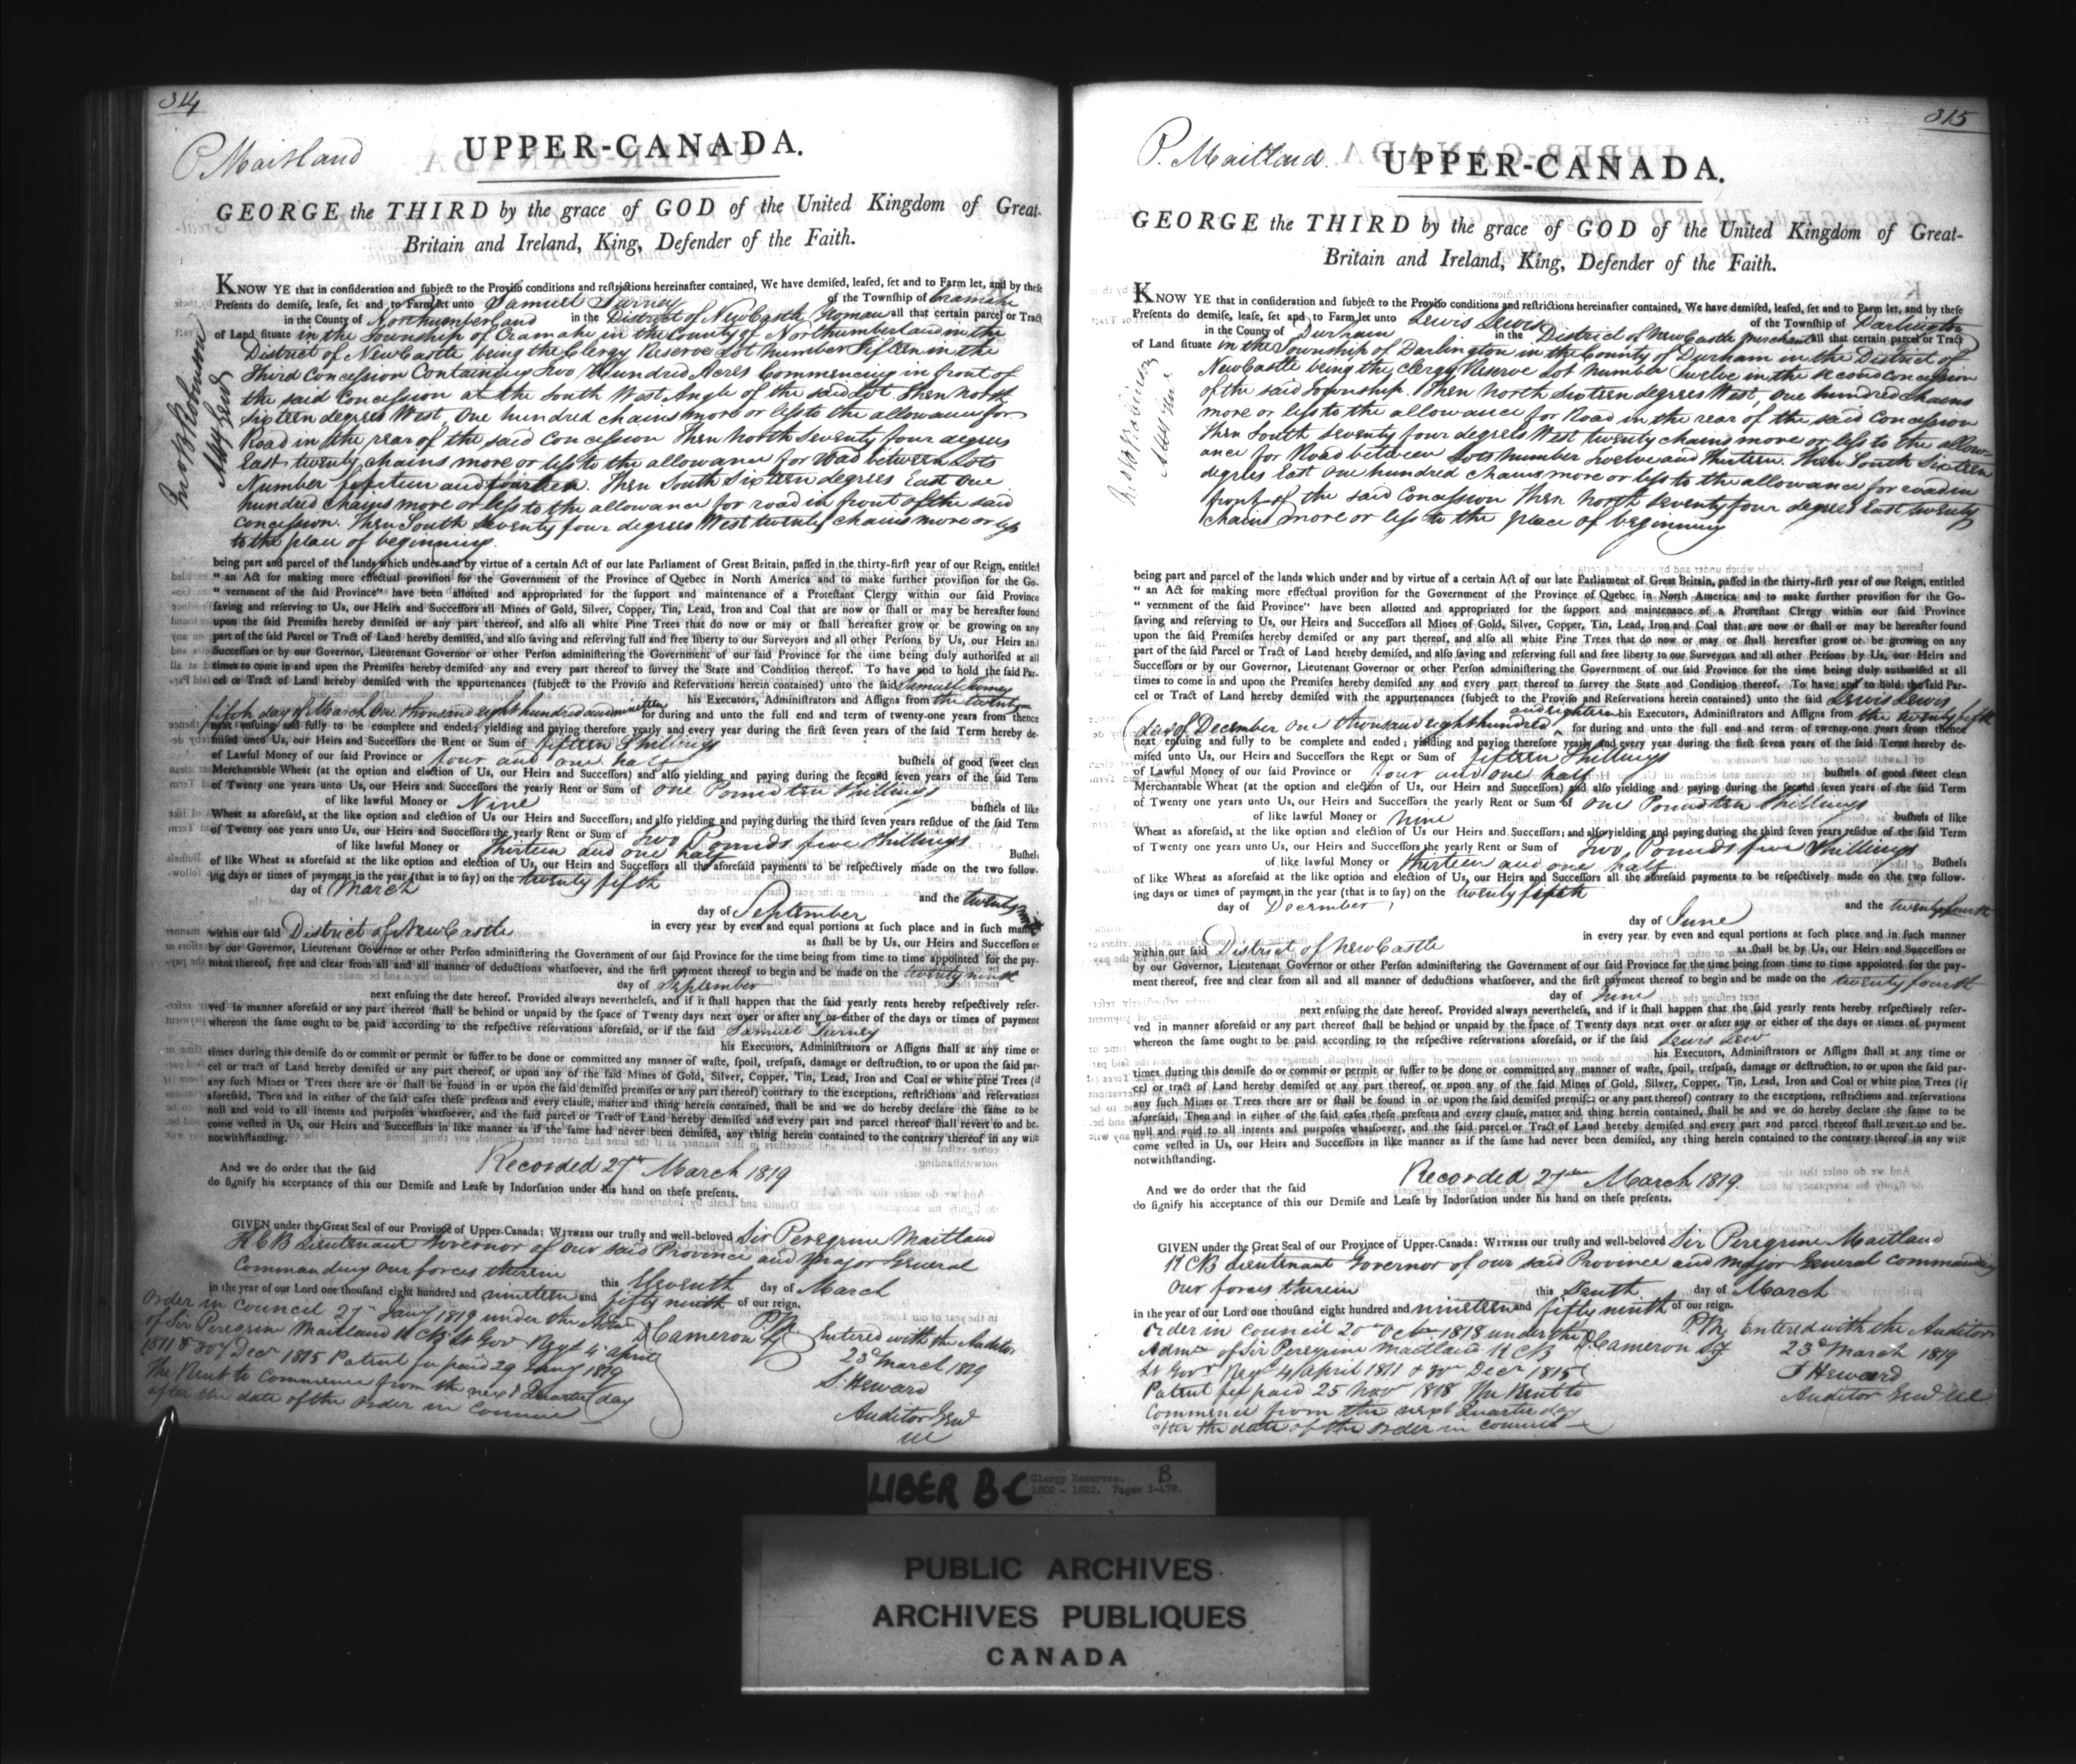 314
P Maitland
UPPER-CANADA.
GEORGE the THIRD by the grace of GOD of the United Kingdom of Great-
Britain and Ireland, King, Defender of the Faith.
KNOW YE that in consideration and subject to the Proviso conditions and restrictions hereinafter contained, We have demised, leased, set and to Farm let, and by these
Presents do demise, lease, set and to Farm let unto Samuel Turney of the Township of Cramahe
in the County of Northumberland in the District of NewCastle Yeoman all that certain parcel or Tract
of Land situate in the Township of Cramahe in the County of Northumberland in the
District of NewCastle being the Clergy Reserve Lot Number Fifteen in the
Third Concession Containing Two Hundred Acres Commencing in front of
the said Concession at the South West Angle of the said Lot Then North
Sixteen degrees West, One hundred chains more or less to the allowance for
Road in the rear of the said Concession Then North Seventy four degrees
East twenty chains more or less to the allowance for road between Lots
Number fifteen and fourteen. Then South Sixteen degrees East One
hundred chains more or less to the allowance for road in front of the said
concession. Then South Seventy four degrees West twenty chains more or less
to the place of beginning.
Jno B Robinson
Atty Genl
being part and parcel of the lands which under and by virtue of a certain Act of our late Parliament of Great Britain, passed in the thirty-first year of our Reign, entitled
" an Act for making more effectual provision for the Government of the Province of Quebec in North America and to make further provision for the Go-
" vernment of the said Province" have been allotted and appropriated for the support and maintenance of a Protestant Clergy within our said Province
saving and reserving to Us, our Heirs and Successors all Mines of Gold, Silver, Copper, Tin, Lead, Iron and Coal that are now or shall or may be hereafter found
upon the said Premises hereby demised or any part thereof, and also all white Pine Trees that do now or may or shall hereafter grow or be growing on any
part of the said Parcel or Tract of Land hereby demised, and also saving and reserving full and free liberty to our Surveyors and all other Persons by Us, our Heirs and
Successors or by our Governor, Lieutenant Governor or other Person administering the Government of our said Province for the time being duly authorised at all
times to come in and upon the Premises hereby demised any and every part thereof to survey the State and Condition thereof. To have and to hold the said Par-
cel or Tract of Land hereby demised with the appurtenances (subject to the Proviso and Reservations herein contained) unto the said Samuel Turney
his Executors, Administrators and Assigns from the twenty-
fifth day of March One thousand eight hundred and nineteen for during and unto the full end and term of twenty-one years from thence
next ensuing and fully to be complete and ended; yielding and paying therefore yearly and every year during the first seven years of the said Term hereby de-
mised unto Us, our Heirs and Successors the Rent or Sum of fifteen Shillings
of Lawful Money of our said Province or four and one half bushels of good sweet clean
Merchantable Wheat (at the option and election of Us, our Heirs and Successors) and also yielding and paying during the second seven years of the said Term
of Twenty one years unto Us, our Heirs and Successors the yearly Rent or Sum of One Pound ten Shillings
of like lawful Money or Nine bushels of like
Wheat as aforesaid, at the like option and election of Us our Heirs and Successors; and also yielding and paying during the third seven years residue of the said Term
of Twenty one years unto Us, our Heirs and Successors the yearly Rent or Sum of Two Pounds five Shillings
of like lawful Money or Thirteen and one half Bushels
of like Wheat as aforesaid at the like option and election of Us, our Heirs and Successors all the aforesaid payments to be respectively made on the two follow-
ing days or times of payment in the year (that is to say) on the twenty fifth
day of March and the twenty ninth
day of September
in every year by even and equal portions at such place and in such manner
within our said District of NewCastle as shall be by Us, our Heirs and Successors or
by our Governor, Lieutenant Governor or other Person administering the Government of our said Province for the time being from time to time appointed for the pay-
ment thereof, free and clear from all and all manner of deductions whatsoever, and the first payment thereof to begin and be made on the twenty ninth
day of September
next ensuing the date hereof. Provided always nevertheless, and if it shall happen that the said yearly rents hereby respectively reser-
ved in manner aforesaid or any part thereof shall be behind or unpaid by the space of Twenty days next over or after any or either of the days or times of payment
whereon the same ought to be paid according to the respective reservations aforesaid, or if the said Samuel Turney
his Executors, Administrators or Assigns shall at any time or
times during this demise do or commit or permit or suffer to be done or committed any manner of waste, spoil, trespass, damage or destruction, to or upon the said par-
cel or tract of Land hereby demised or any part thereof, or upon any of the said Mines of Gold, Silver, Copper, Tin, Lead, Iron and Coal or white pine Trees (if
any such Mines or Trees there are or shall be found in or upon the said demised premises or any part thereof) contrary to the exceptions, restrictions and reservations
aforesaid, Then and in either of the said cases these presents and every clause, matter and thing herein contained, shall be and we do hereby declare the same to be
null and void to all intents and purposes whatsoever, and the said parcel or Tract of Land hereby demised and every part and parcel thereof shall revert to and be-
come vested in Us, our Heirs and Successors in like manner as if the same had never been demised, any thing herein contained to the contrary thereof in any wise
notwithstanding.
Recorded 27th March 1819
And we do order that the said
do signify his acceptance of this our Demise and Lease by Indorsation under his hand on these presents.
GIVEN under the Great Seal of our Province of Upper-Canada: WITNESS our trusty and well-beloved Sir Peregrine Maitland
KCB Lieutenant Governor of our said Province and Major General
Commanding Our forces therein
this Eleventh day of March
in the year of our Lord one thousand eight hundred and nineteen and fifty ninth of our reign.
Order in Council 27th Jany 1819 under the Adm
of Sir Peregrine Maitland KCB Lt Gov Regt 4 April
1811 & 30th Decr 1815 Patent fee paid 29 Jany 1819
The Rent to Commence from the next Quarter day
after the date of the Order in Council
P.R.
D Cameron Sy
Entered with the Auditor
23d March 1819
S. Heward
Auditor Genl
UC
315
P. Maitland.
UPPER-CANADA.
GEORGE the THIRD by the grace of GOD of the United Kingdom of Great-
Britain and Ireland, King, Defender of the Faith.
KNOW YE that in consideration and subject to the Proviso conditions and restrictions hereinafter contained, We have demised, leased, set and to Farm let, and by these
Presents do demise, lease, set and to Farm let unto Lewis Lewis of the Township of Darlington
in the County of Durham in the District of NewCastle Merchant all that certain parcel or Tract
of Land situate in the Township of Darlington in the County of Durham in the District of
NewCastle being the Clergy Reserve Lot Number Twelve in the second concession
of the said Township. Then North Sixteen degrees West, One hundred chains
more or less to the allowance for Road in the rear of the said Concession
Then South Seventy four degrees West twenty chains more or less to the allow-
ance for Road between Lots Number Twelve and Thirteen. Then South Sixteen
degrees East One hundred chains more or less to the allowance for road in
front of the said Concession Then North Seventy four degrees East twenty
chains more or less to the place of beginning
being part and parcel of the lands which under and by virtue of a certain Act of our late Parliament of Great Britain, passed in the thirty-first year of our Reign, entitled
" an Act for making more effectual provision for the Government of the Province of Quebec in North America and to make further provision for the Go-
" vernment of the said Province" have been allotted and appropriated for the support and maintenance of a Protestant Clergy within our said Province
saving and reserving to Us, our Heirs and Successors all Mines of Gold, Silver, Copper, Tin, Lead, Iron and Coal that are now or shall or may be hereafter found
upon the said Premises hereby demised or any part thereof, and also all white Pine Trees that do now or may or shall hereafter grow or be growing on any
part of the said Parcel or Tract of Land hereby demised, and also saving and reserving full and free liberty to our Surveyors and all other Persons by Us, our Heirs and
Successors or by our Governor, Lieutenant Governor or other Person administering the Government of our said Province for the time being duly authorised at all
times to come in and upon the Premises hereby demised any and every part thereof to survey the State and Condition thereof. To have and to hold the said Par-
cel or Tract of Land hereby demised with the appurtenances (subject to the Proviso and Reservations herein contained) unto the said Lewis Lewis
and eighteen his Executors, Administrators and Assigns from the twenty fifth
day of December One thousand eight hundred for during and unto the full end and term of twenty-one years from thence
next ensuing and fully to be complete and ended; yielding and paying therefore yearly and every year during the first seven years of the said Term hereby de-
mised unto Us, our Heirs and Successors the Rent or Sum of fifteen Shillings
of Lawful Money of our said Province or four and one half bushels of good sweet clean
Merchantable Wheat (at the option and election of Us, our Heirs and Successors) and also yielding and paying during the second seven years of the said Term
of Twenty one years unto Us, our Heirs and Successors the yearly Rent or Sum of One Pound ten Shillings
of like lawful Money or Nine bushels of like
Wheat as aforesaid, at the like option and election of Us our Heirs and Successors; and also yielding and paying during the third seven years residue of the said Term
of Twenty one years unto Us, our Heirs and Successors the yearly Rent or Sum of Two Pounds five Shillings
of like lawful Money or thirteen and one half Bushels
of like Wheat as aforesaid at the like option and election of Us, our Heirs and Successors all the aforesaid payments to be respectively made on the two follow-
ing days or times of payment in the year (that is to say) on the twenty fifth
day of December and the twenty fourth
day of June
in every year by even and equal portions at such place and in such manner
within our said District of NewCastle as shall be by Us, our Heirs and Successors or
by our Governor, Lieutenant Governor or other Person administering the Government of our said Province for the time being from time to time appointed for the pay-
ment thereof, free and clear from all and all manner of deductions whatsoever, and the first payment thereof to begin and be made on the twenty fourth
day of June
next ensuing the date hereof. Provided always nevertheless, and if it shall happen that the said yearly rents hereby respectively reser-
ved in manner aforesaid or any part thereof shall be behind or unpaid by the space of Twenty days next over or after any or either of the days or times of payment
whereon the same ought to be paid according to the respective reservations aforesaid, or if the said Lewis Lew
his Executors, Administrators or Assigns shall at any time or
times during this demise do or commit or permit or suffer to be done or committed any manner of waste, spoil, trespass, damage or destruction, to or upon the said par-
cel or tract of Land hereby demised or any part thereof, or upon any of the said Mines of Gold, Silver, Copper, Tin, Lead, Iron and Coal or white pine Trees (if
any such Mines or Trees there are or shall be found in or upon the said demised premises or any part thereof) contrary to the exceptions, restrictions and reservations
aforesaid, Then and in either of the said cases these presents and every clause, matter and thing herein contained, shall be and we do hereby declare the same to be
null and void to all intents and purposes whatsoever, and the said parcel or Tract of Land hereby demised and every part and parcel thereof shall revert to and be-
come vested in Us, our Heirs and Successors in like manner as if the same had never been demised, any thing herein contained to the contrary thereof in any wise
notwithstanding.
Recorded 27th March 1819.
And we do order that the said
do signify his acceptance of this our Demise and Lease by Indorsation under his hand on these presents.
GIVEN under the Great Seal of our Province of Upper-Canada: WITNESS our trusty and well-beloved Sir Peregrine Maitland
KCB Lieutenant Governor of our said Province and Major General Commanding
Our forces therein this Tenth day of March
in the year of our Lord one thousand eight hundred and nineteen and fifty ninth of our reign.
Order in Council 20th Octr 1818 under the
Admn of Sir Peregrine Maitland KCB
Lt Govr Regt 4 April 1811 & 30th Decr 1815
Patent fee paid 25 Nov 1818 The Rent to
Commence from the next Quarter day
after the date of the Order in Council
P.R.
D. Cameron Sy
Entered with the Auditor
23d March 1819
S Heward
Auditor Genl UC
LIBER B-C
Clergy Reserves. B
1802 - 1822. Pages 1-476.
PUBLIC ARCHIVES
ARCHIVES PUBLIQUES
CANADA